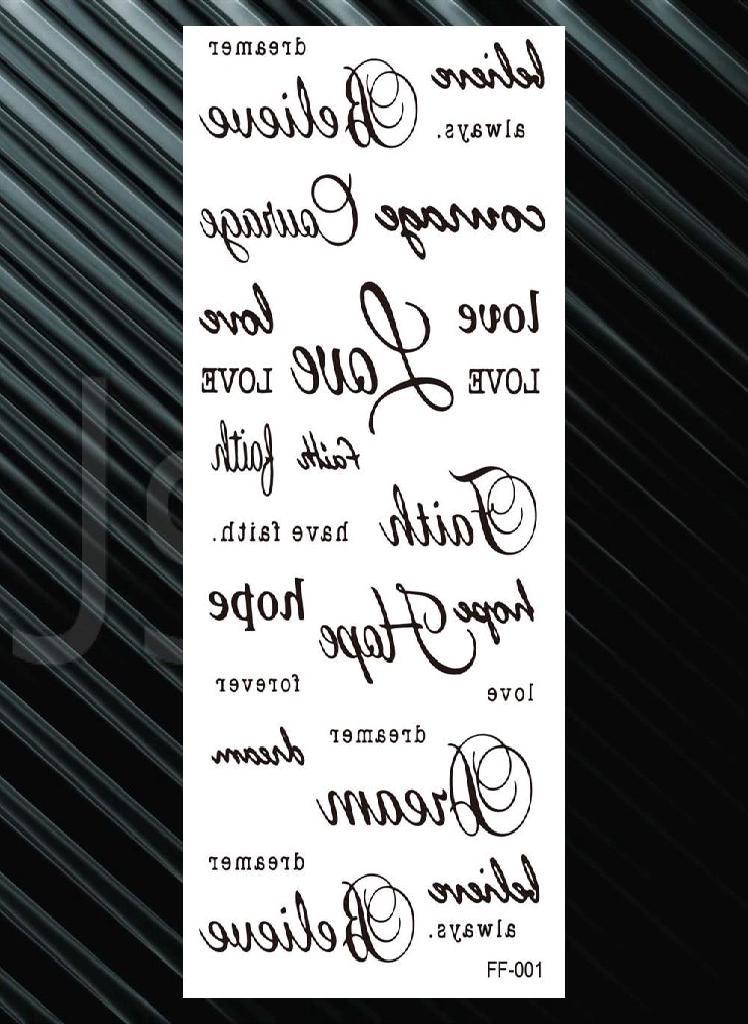 dreamer
believe
Believe
always.
Courage
courage
love
Love
love
LOVE
LOVE
faith
faith
Faith
have faith.
hope
Hope
hope
forever
love
dreamer
dream
Dream
dreamer
believe
Believe
always.
FF-001